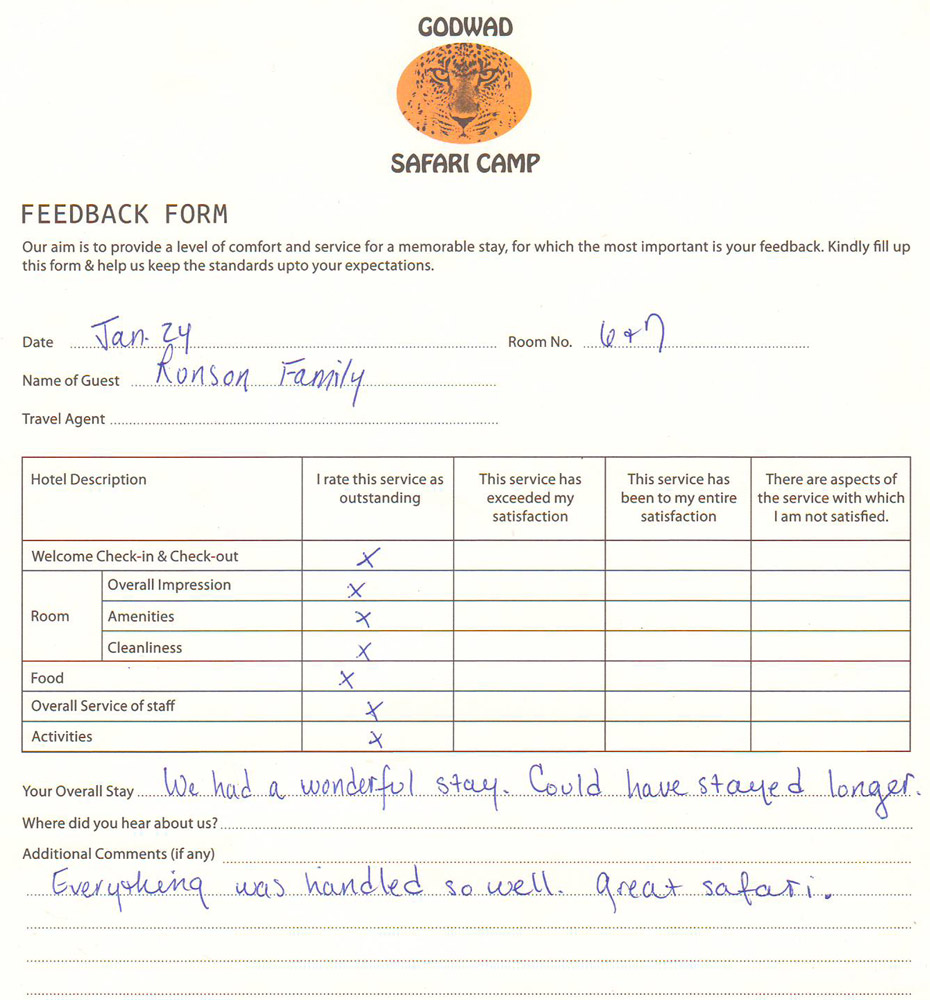 GODWAD
SAFARI CAMP
FEEDBACK FORM
Our aim is to provide a level of comfort and service for a memorable stay, for which the most important is your feedback. Kindly fill up
this form & help us keep the standards upto your expectations.
Date Jan. 24 Room No. 6 + 7
Name of Guest Ronson Family
Travel Agent
Hotel Description
I rate this service as
outstanding
This service has
exceeded my
satisfaction
This service has
been to my entire
satisfaction
There are aspects of
the service with which
I am not satisfied.
Welcome Check-in & Check-out X
Room
Overall Impression X
Amenities X
Cleanliness X
Food X
Overall Service of staff X
Activities X
Your Overall Stay We had a wonderful stay. Could have stayed longer.
Where did you hear about us?
Additional Comments (if any)
Everything was handled so well. Great safari.